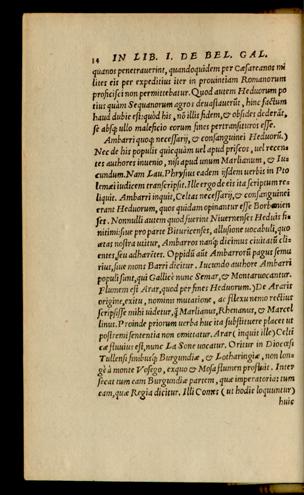 14 IN LIB. I. DE BEL. GAL.
quanos penetrauerint, quandoquidem per Cæsareanos mi
lites eis per expeditius iter in prouintiam Romanorum
proficisci non permittebatur. Quod autem Heduorum po
tius quàm Sequanorum agros deuastauerūt, hinc factum
haud dubie est: quòd his, nō illis fidem, & obsides dederūt,
se absq; ullo maleficio eorum fines pertransituros esse.
Ambarri quoq; necessarij, & consanguinei Heduorū.)
Nec de his populis quicquàm uel apud priscos, uel recen
tes authores inuenio, nisi apud unum Marlianum, & Iu
cundum. Nam Lau. Phrysius eadem ijsdem uerbis in Pto
lemæi iudicem transcripsit. Ille ergo de eis ita scriptum re
liquit. Ambarri inquit, Celtas necessarij, & consanguinei
erant Heduorum, quos quidam opinantur esse Borbonien
ses. Nonnulli autem quod fuerint Niuernenses Heduis fi
nitimi: siue pro parte Bituricenses, allusione uocabuli, quo
ætas nostra utitur, Ambarros nanq; dicimus ciuitatū cli
entes, seu adhærētes. Oppidū aūt Ambarrorū pagus semu
rius, siue mons Barri dicitur. Iucundo authore Ambarri
populi sunt, qui Gallicè nunc Semar, & Montaruocantur.
Flumen est Arar, quod per fines Heduorum.) De Araris
origine, exitu, nominis mutatione, ac flexu nemo rectius
scripsisse mihi uidetur, q̃ Marlianus, Rhenanus, & Marcel
linus. Proinde priorum uerba huc ita substituere placet ut
postremi sententia non omittatur. Arar (inquit ille) Celti
cæ fluuius est, nunc La Sone uocatur. Oritur in Diocæsi
Tullensi finibusq; Burgundiæ, & Lotharingiæ, non lon
gè à monte Vosego, ex quo & Mosa flumen profluit. Inter
secat tum eam Burgundiæ partem, quæ imperatoria: tum
eam, quæ Regia dicitur. Illi Comes (ut hodie loquuntur)
huic